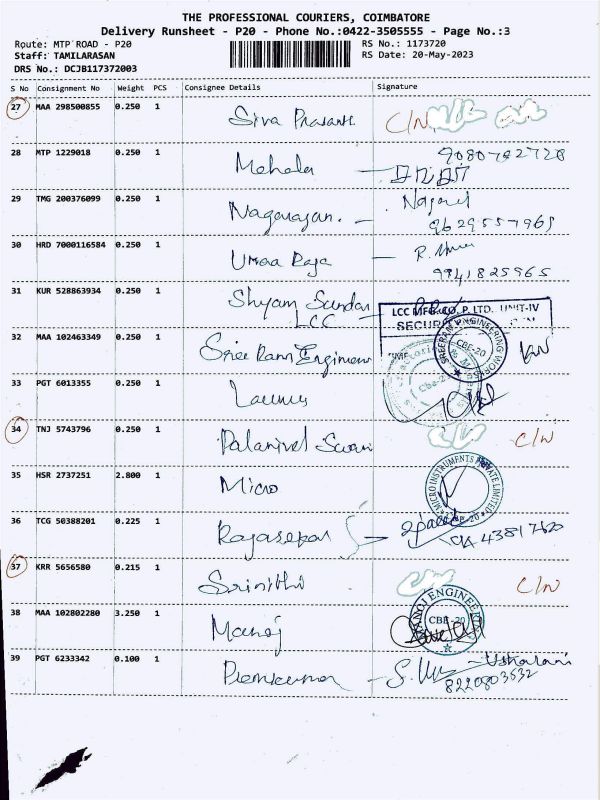 THE PROFESSIONAL COURIERS, COIMBATORE
Delivery Runsheet - P20 - Phone No.:0422-3505555 - Page No.:3
Route: MTP ROAD - P20
RS No.: 1173720
Staff: TAMILARASAN
RS Date: 20-May-2023
DRS No.: DCJB117372003
S No Consignment No Weight PCS Consignee Details Signature
27 MAA 298500855 0.250 1 Siva Prasanth C/N
28 MTP 1229018 0.250 1 Mehala 9080742728
29 TMG 200376099 0.250 1 Nagarajan. 9629557969
30 HRD 7000116584 0.250 1 Umaa Raja R. 9941825965
31 KUR 528863934 0.250 1 Shyam Sundar
LCC
LCC MFG. CO. P. LTD. UNIT-IV
32 MAA 102463349 0.250 1 Sree Ram Engineers
SREERAM ENGINEERING WORKS
CBE-20
33 PGT 6013355 0.250 1
34 TNJ 5743796 0.250 1 Palanivel Swami C/N
35 HSR 2737251 2.800 1 Micro
MICRO INSTRUMENTS PRIVATE LIMITED
36 TCG 50388201 0.225 1 Rajasekar
37 KRR 5656580 0.215 1 Srinithi C/N
38 MAA 102802280 3.250 1 Manoj
MANOJ ENGINEERING
CBE-20
39 PGT 6233342 0.100 1 Premkumar Usharani
8220803532